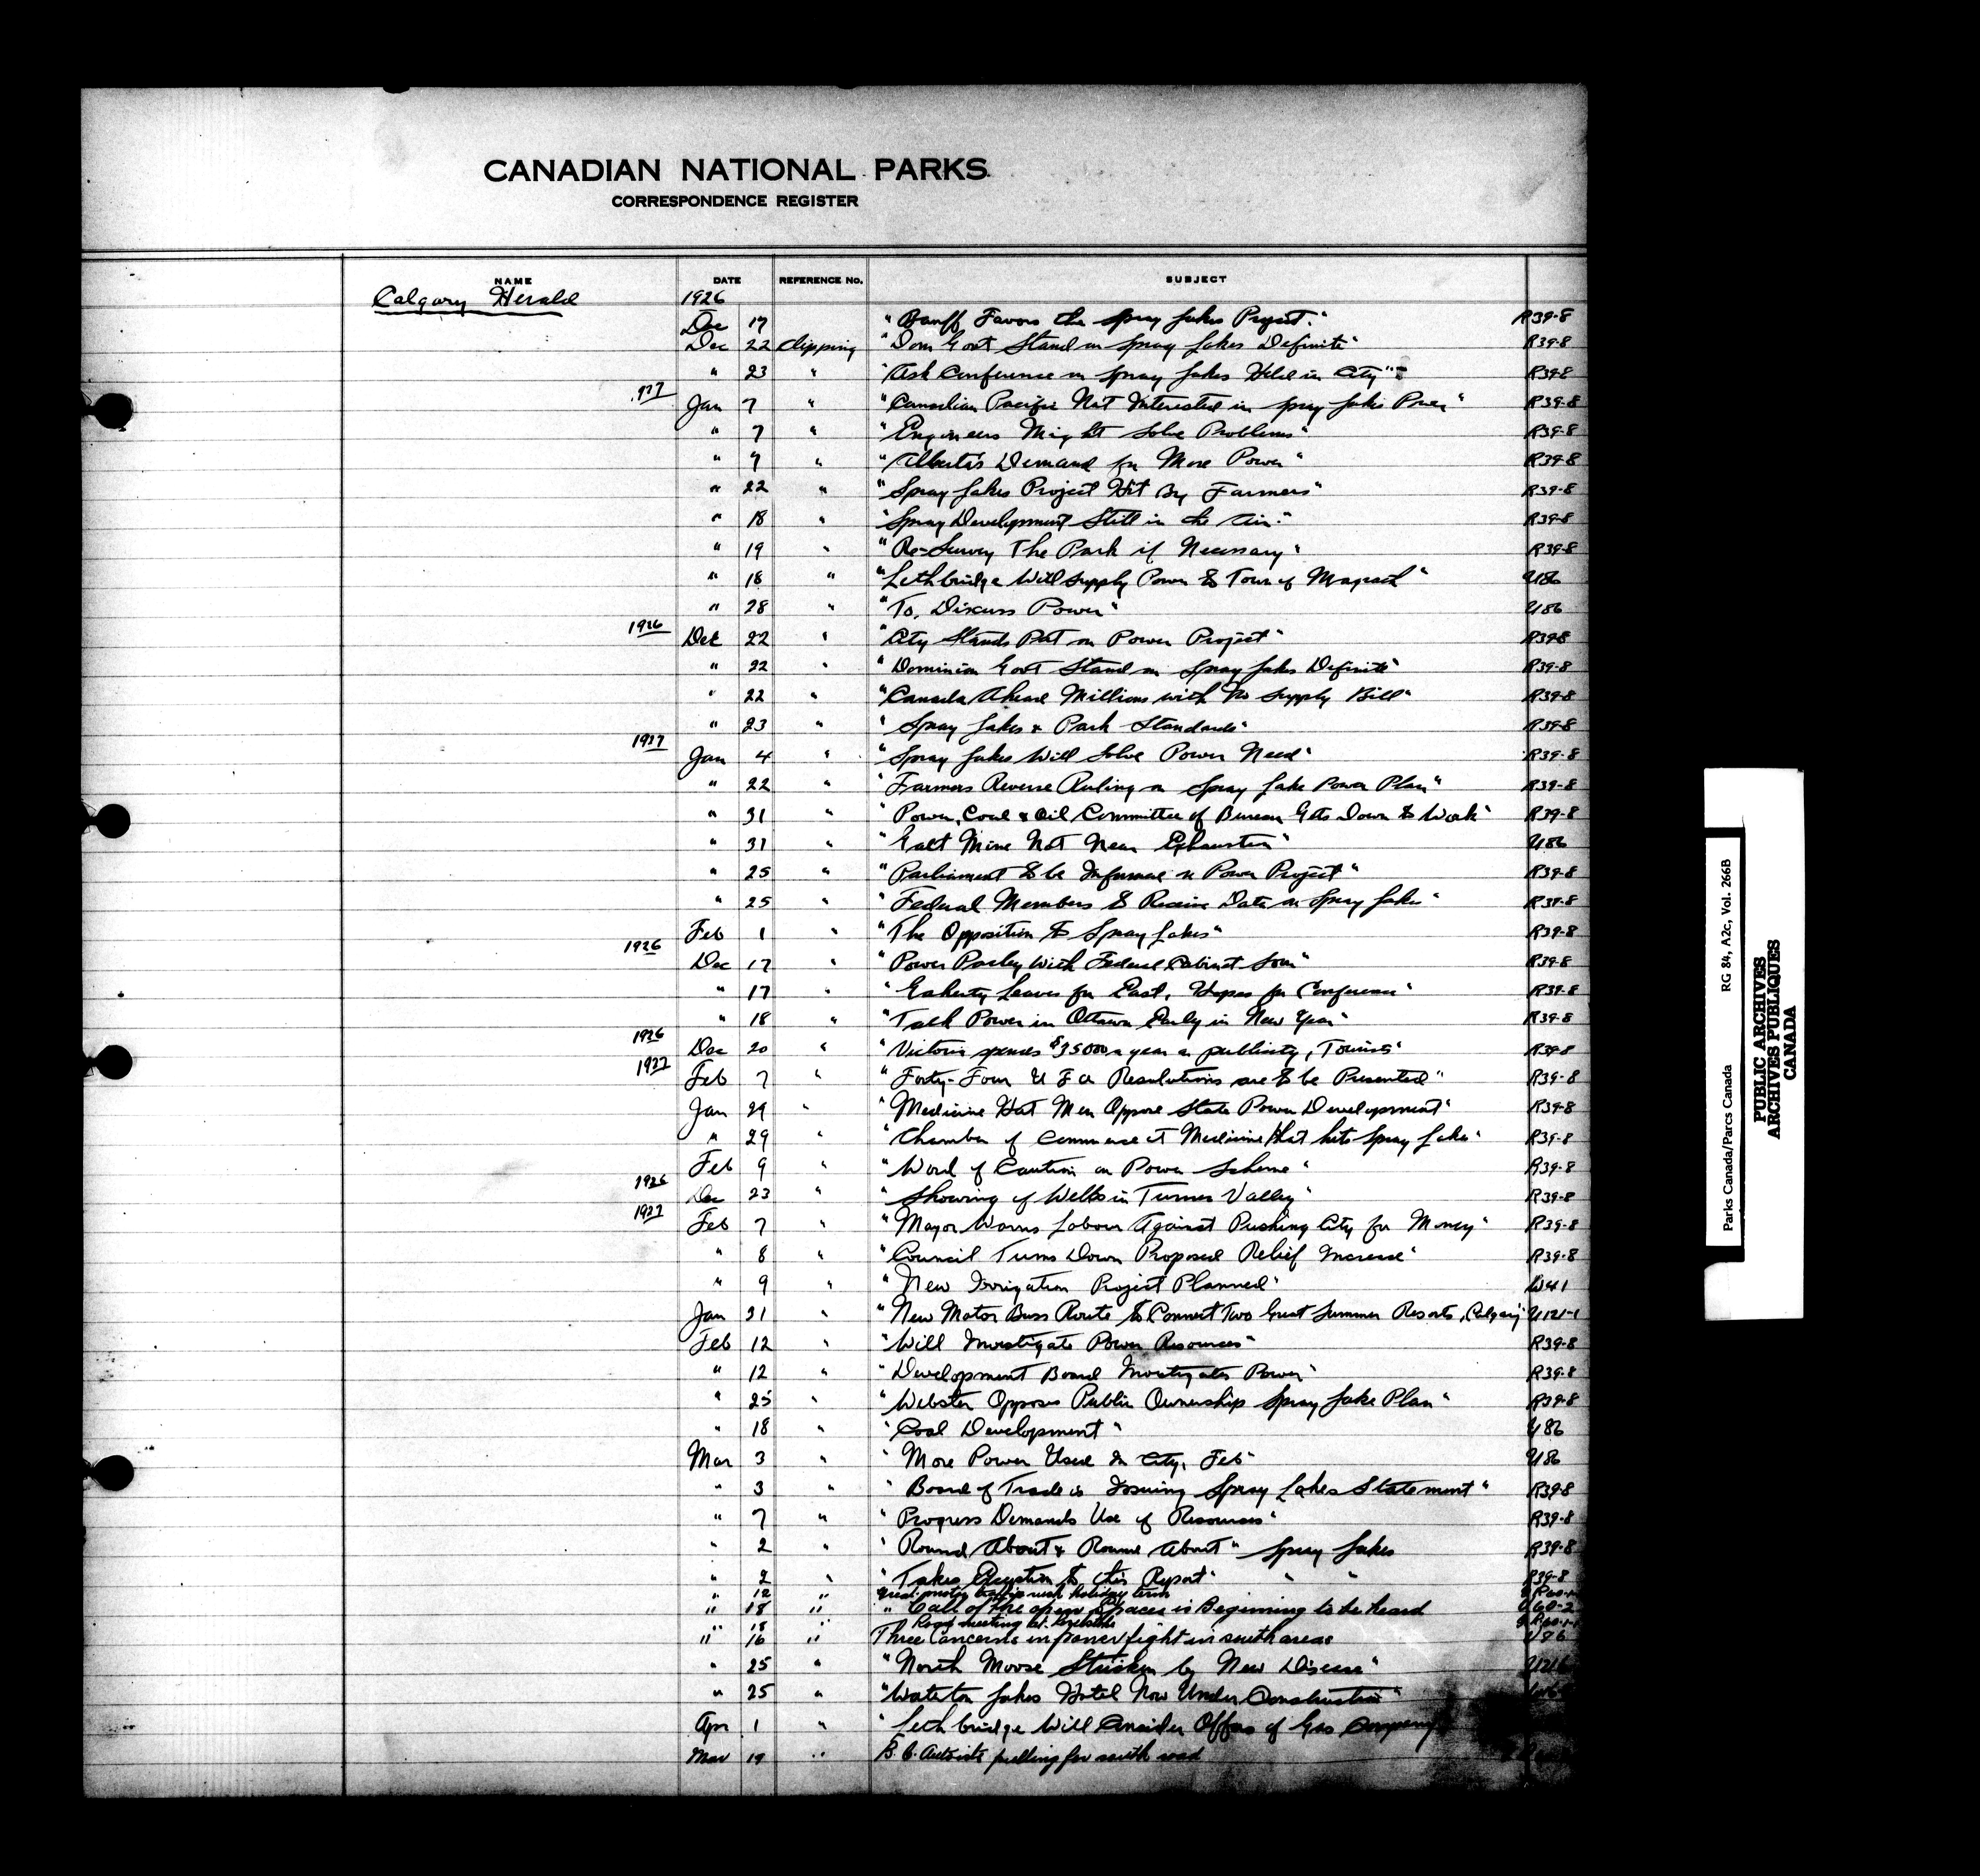 CANADIAN NATIONAL PARKS
CORRESPONDENCE REGISTER
NAME DATE REFERENCE No. SUBJECT
Calgary Herald 1926
Dec 17 "Banff Favors the Spray Lakes Project." R39-8
Dec 22 Clipping "Dom Govt Stand on Spray Lakes Definite" R39-8
" 23 " "Ask Conference on Spray Lakes Held in City" R39-8
1927 Jan 7 " "Canadian Pacific Not Interested in Spray Lakes Power" R39-8
" 7 " "Engineers Might Solve Problems" R39-8
" 7 " "Alberta's Demand for More Power" R39-8
" 22 " "Spray Lakes Project Hit By Farmers" R39-8
" 18 " "Spray Development Still in the Air." R39-8
" 19 " "Re-Survey The Park if Necessary" R39-8
" 18 " "Lethbridge Will Supply Power to Town of Magrath" U86
" 28 " "To Discuss Power" U86
1926 Dec 22 " "City Stands Pat on Power Project" R39-8
" 22 " "Dominion Govt Stand on Spray Lakes Definite" R39-8
" 22 " "Canada Ahead Millions with No Supply Bill" R39-8
" 23 " "Spray Lakes & Park Standards" R39-8
1927 Jan 4 " "Spray Lakes Will Solve Power Need" R39-8
" 22 " "Farmers Reverse Ruling on Spray Lake Power Plan" R39-8
" 31 " "Power, Coal & Oil Committee of Bureau Gets Down to Work" R39-8
" 31 " "Galt Mine Not Near Exhaustion" U86
" 25 " "Parliament to be Informed re Power Project" R39-8
" 25 " "Federal Members to Receive Data on Spray Lakes" R39-8
Feb 1 " "The Opposition to Spray Lakes" R39-8
1926 Dec 17 " "Power Parley With Federal Cabinet Soon" R39-8
" 17 " "Leaves for East, Hopes for Conference" R39-8
" 18 " "Talk Power in Ottawa Early in New Year" R39-8
1926 Dec 20 " "Victoria spends $35000 a year on publicity, Tourists" R39-8
1927 Feb 7 " "Forty-Four U F A Resolutions are to be Presented" R39-8
Jan 29 " "Medicine Hat Men Oppose State Power Development" R39-8
" 29 " "Chamber of Commerce at Medicine Hat hits Spray Lakes" R39-8
Feb 9 " "Word of Caution on Power Scheme" R39-8
1926 Dec 23 " "Showing of Wells in Turner Valley" R39-8
1927 Feb 7 " "Mayor Warns Labour Against Pushing City for Money" R39-8
" 8 " "Council Turns Down Proposed Relief Increase" R39-8
" 9 " "New Irrigation Project Planned" W41
Jan 31 " "New Motor Buss Route to Connect Two Great Summer Resorts, Calgary" U121-1
Feb 12 " "Will Investigate Power Resources" R39-8
" 12 " "Development Board Investigates Power" R39-8
" 25 " "Webster Opposes Public Ownership Spray Lake Plan" R39-8
" 18 " "Coal Development" U86
Mar 3 " "More Power Used In City, Feb" U86
" 3 " "Board of Trade is Issuing Spray Lakes Statement" R39-8
" 7 " "Progress Demands Use of Resources" R39-8
" 2 " "Round About & Round About" Spray Lakes R39-8
" 2 " "Takes Exception to this Report" " " R39-8
" 12 " holiday
" 18 " "Call of the open Spaces is Beginning to be heard U60-2
" 18 Road meeting
" 16 " Three Concerns in fight in south areas U86
" 25 " "North Moose Stricken by New Disease"
" 25 " "Waterton Lakes Hotel Now Under Construction"
Apr 1 " "Lethbridge Will Consider Offers of Gas Company
Mar 19 " B.C. Autoists pulling for south road
Parks Canada/Parcs Canada RG 84, A2c, Vol. 266B
PUBLIC ARCHIVES
ARCHIVES PUBLIQUES
CANADA